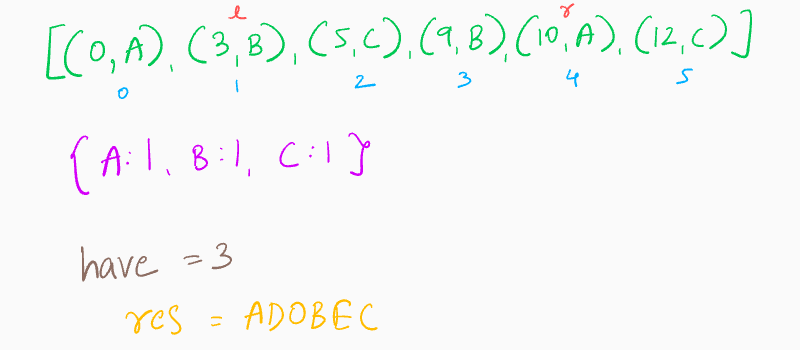 l r
[(0,A), (3,B), (5,C), (9,B), (10,A), (12,C)]
0 1 2 3 4 5
{A:1, B:1, C:1}
have = 3
res = ADOBEC